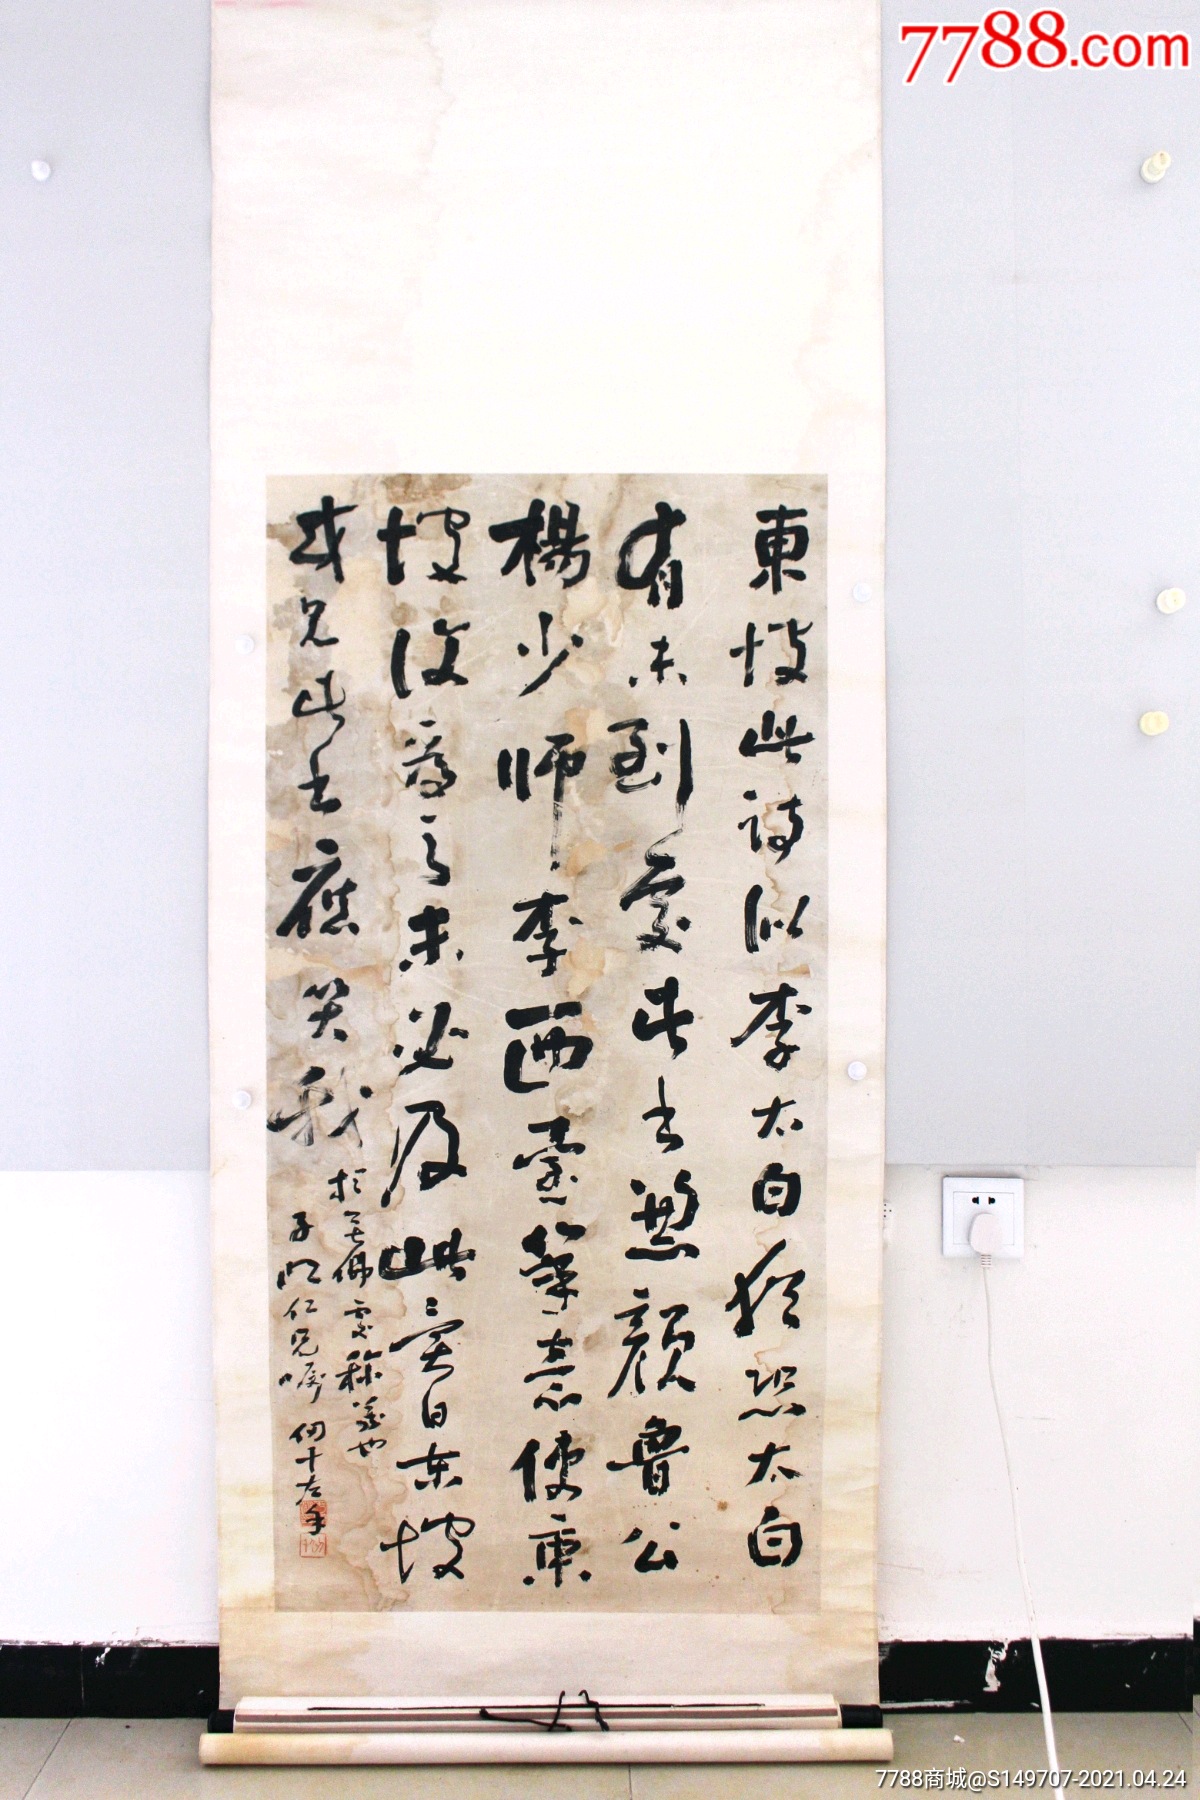 7788.com
東坡此詩似李太白猶恐太白
有未到處此書兼顏魯公
楊少師李西臺筆意使東
坡復為之未必及此它日東坡
或見此書應笑我
於無佛處稱尊也
子明仁兄囑
仞千左手
7788商城@S149707-2021.04.24